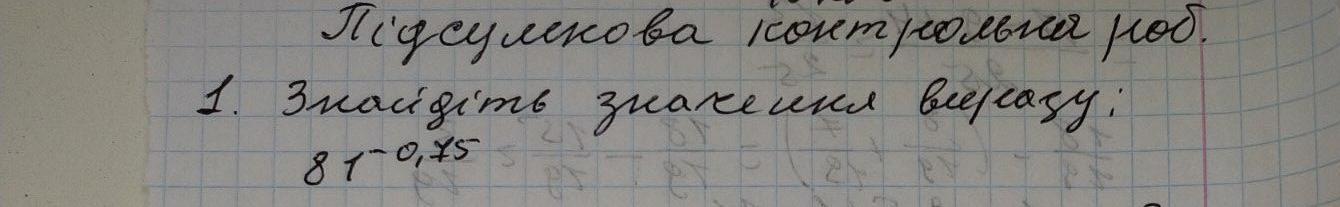 Підсумкова контрольна роб.
1. Знайдіть значення виразу:
81^-0,75